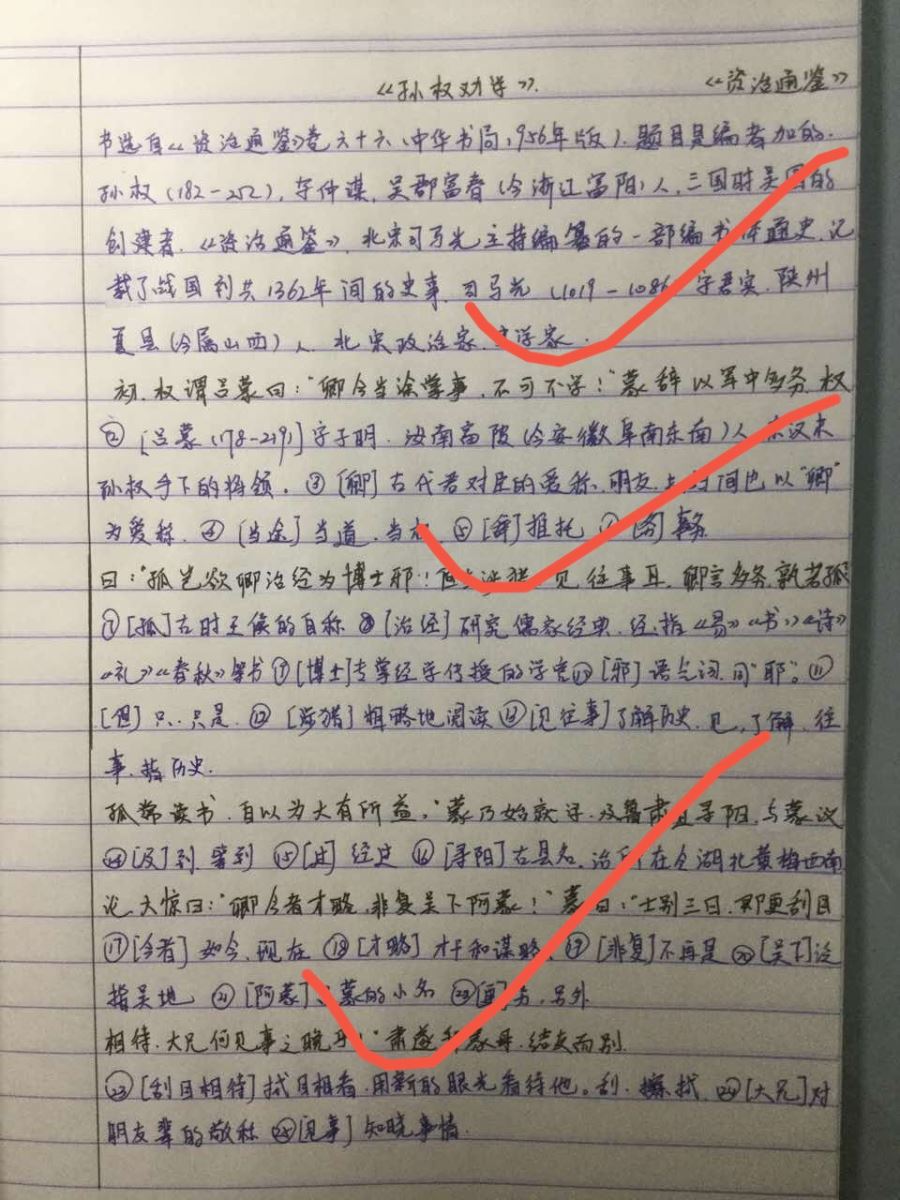 《孙权劝学》. 《资治通鉴》
节选自《资治通鉴》卷六十六(中华书局1956年版).题目是编者加的.
孙权(182-252),字仲谋,吴郡富春(今浙江富阳)人,三国时吴国的
创建者.《资治通鉴》,北宋司马光主持编纂的一部编年体通史,记
载了战国到共1362年间的史事.司马光(1019-1086 字君实.陕州
夏县(今属山西)人,北宋政治家.史学家.
初,权谓吕蒙曰:"卿今当涂掌事,不可不学!"蒙辞以军中多务.权
② [吕蒙(178-219)]字子明.汝南富陂(今安徽阜南东南)人 东汉末
孙权手下的将领.③[卿]古代君对臣的爱称.朋友 间也以"卿"
为爱称.④[当途]当道.当 ⑤[辞]推托 [务]事务.
曰:"孤岂欲卿治经为博士邪!但当涉猎,见往事耳.卿言多务.孰若孤
⑦[孤]古时王侯的自称 ⑧[治经]研究儒家经典.经.指《易》《书》《诗》
《礼》《春秋》等书 ⑨[博士]专掌经学传授的学官⑩[邪]语气词.同"耶"。⑪
[但]只.只是.⑫[涉猎]粗略地阅读⑬[见往事]了解历史.见,了解.往
事.指历史.
孤常读书.自以为大有所益."蒙乃始就学.及鲁肃过寻阳,与蒙议
⑭[及]到.等到 ⑮[过]经过 ⑯[寻阳]古县名.治所在今湖北黄梅西南
论.大惊曰:"卿今者才略,非复吴下阿蒙!"蒙曰:"士别三日.即更刮目
⑰[今者]如今.现在 ⑱[才略]才干和谋略 ⑲[非复]不再是⑳[吴下]泛
指吴地 ㉑[阿蒙] 蒙的小名 ㉒[更]另.另外
相待.大兄何见事之晚乎!"肃遂拜蒙母.结友而别.
㉓[刮目相待]拭目相看.用新的眼光看待他。刮.擦拭.㉔[大兄]对
朋友辈的敬称 ㉕[见事]知晓事情.